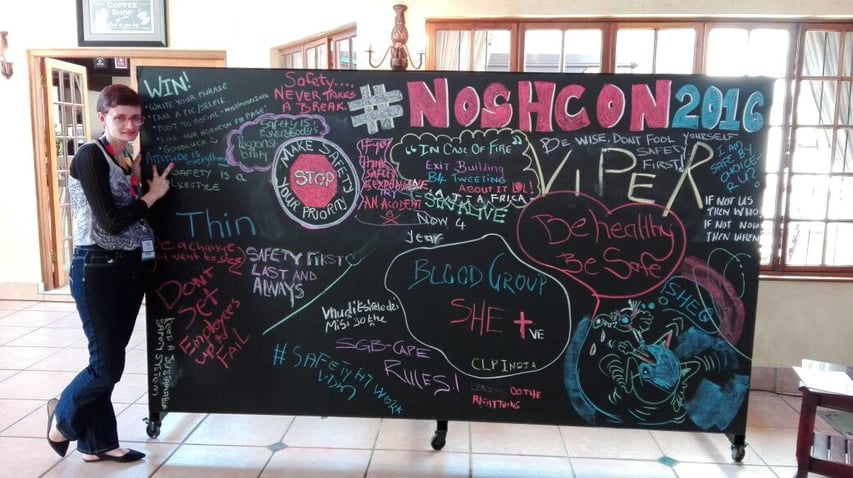 COFFEE
SHOP
WIN!
WRITE YOUR PHRASE
TAKE A PIC/SELFIE
POST TO SOCIAL
LIKE OUR NOSHCON FB PAGE!
GOODLUCK
ATTITUDE IS
everything
SAFETY IS A
LIFESTYLE
Safety....
NEVER TAKES
A BREAK.
#NOSHCON2016
Safety is
Everybody's
Responsibility
MAKE SAFETY
STOP
YOUR PRIORITY
IF YOU
THINK
SAFETY
IS EXPENSIVE
TRY
AN ACCIDENT
"IN CASE OF FIRE"
EXIT BUILDING
B4 TWEETING
ABOUT IT LOL!
AFRICA
STAYALIVE
Now 4
year
BE WISE, DONT FOOL YOURSELF
SAFETY
FIRST!
VIPER
I AM
SAFE BY
CHOICE
R U?
IF NOT US
THEN WHO
IF NOT NOW
THEN WHEN
Be healthy
Be Safe
Thin
Be a change
you want to see
SAFETY FIRST
LAST AND
ALWAYS
DONT
Set
Employees
up to
FAIL
BLOOD GROUP
SHE +VE
CLP INDIA
SGB-CAPE
RULES!
#SAFETY AT WORK
DO THE
RIGHT THING
SHEQ